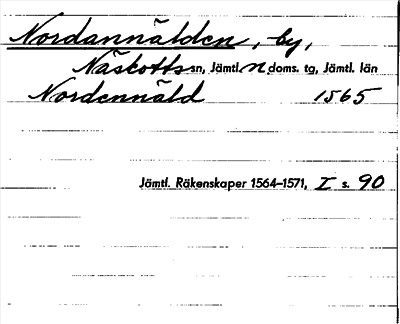 Nordannälden, by,
Näskotts sn, Jämtl. n. doms. tg, Jämtl. län
Nordennäld 1565
Jämtl. Räkenskaper 1564–1571, I s. 90